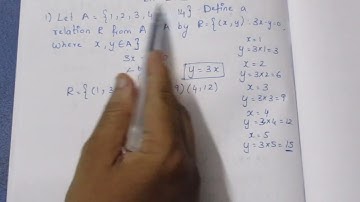 1) Let A = {1, 2, 3, 4 14} Define a
relation R from A A by R = {(x, y) : 3x - y = 0,
where x, y ∈ A}
y = 3x
R = { (1, 3 9) (4, 12)
x = 1
y = 3×1 = 3
x = 2
y = 3×2 = 6
x = 3
y = 3×3 = 9
x = 4
y = 3×4 = 12
x = 5
y = 3×5 = 15